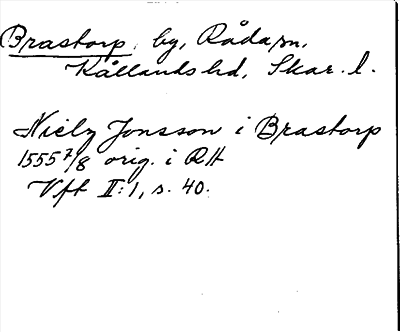 Brastorp, by, Råda sn,
Kållands hd, Skar. l.
Nielz Jonsson i Brastorp
1555 7/8 orig. i RA
Vft II:1, s. 40.